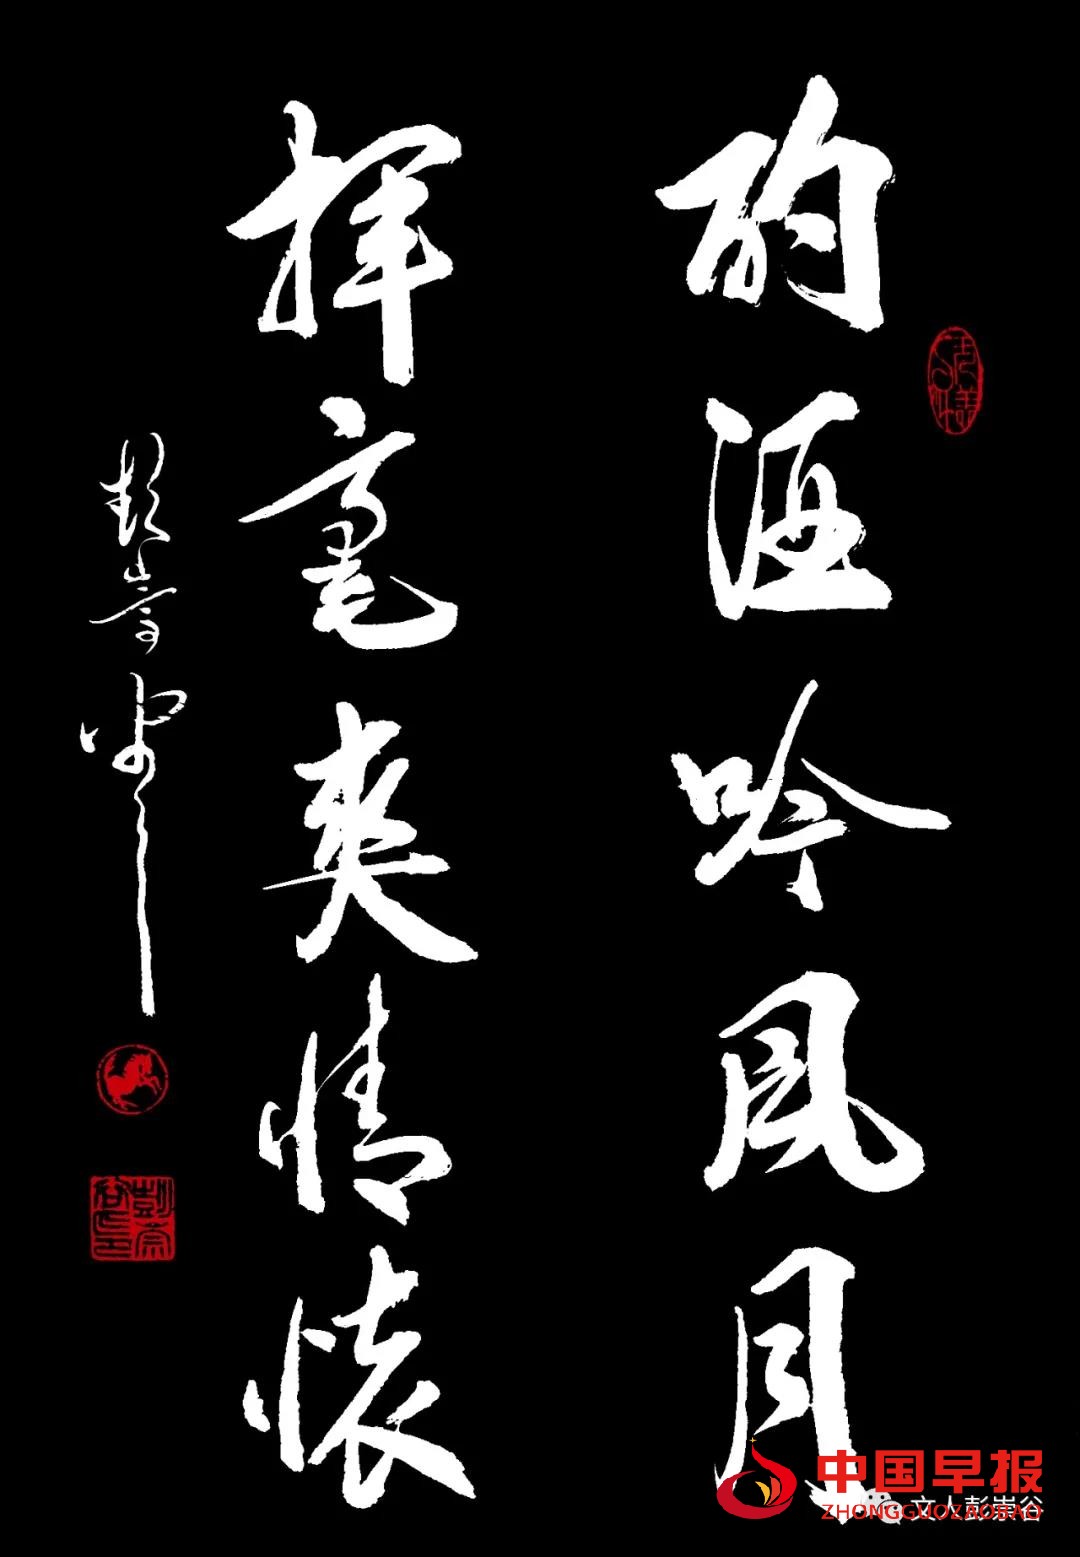 酌酒吟風月
揮毫爽情懷
彭崇谷
彭崇谷印
中国早报
ZHONGGUOZAOBAO
文人彭崇谷